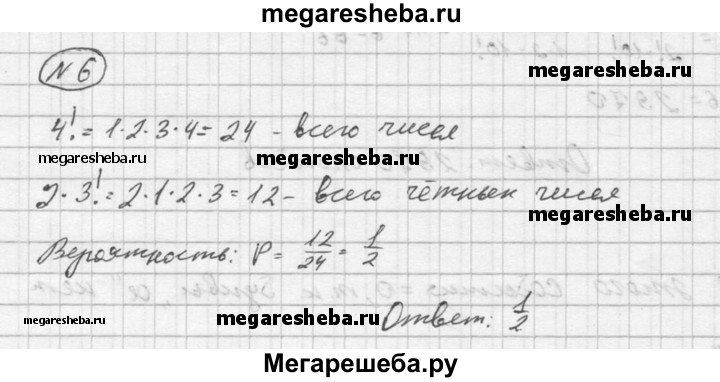 megaresheba.ru
№ 6
megaresheba.ru
4! = 1·2·3·4 = 24 - всего чисел
megaresheba.ru
megaresheba.ru
2·3! = 2·1·2·3 = 12 - всего чётных чисел
megaresheba.ru
Вероятность: P = 12/24 = 1/2
megaresheba.ru
megaresheba.ru
megaresheba.ru
Ответ: 1/2
Мегарешеба.ру